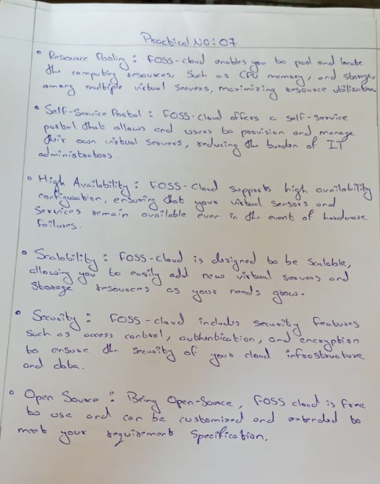 Practical No: 07
• Resource Pooling: FOSS-cloud enables you to pool and
the computing resources. Such as CPU memory, and storage
among multiple virtual servers, maximizing resource utilization
• Self-Service Portal: FOSS-Cloud offers a self-service
portal that allows end users to provision and manage
their own virtual servers, reducing the burden of IT
administrators.
• High Availability: FOSS-Cloud supports high availability
configuration, ensuring that your virtual sensors and
services remain available even in the event of hardware
failures.
• Scalability: FOSS-cloud is designed to be scalable,
allowing you to easily add new virtual servers and
storage resources as your needs grow.
• Security: FOSS-cloud includes security features
such as access control, authentication, and encryption
to ensure the security of your cloud infrastructure
and data.
• Open Source: Being Open-Source, FOSS cloud is free
to use and can be customized and extended to
meet your requirement Specification.